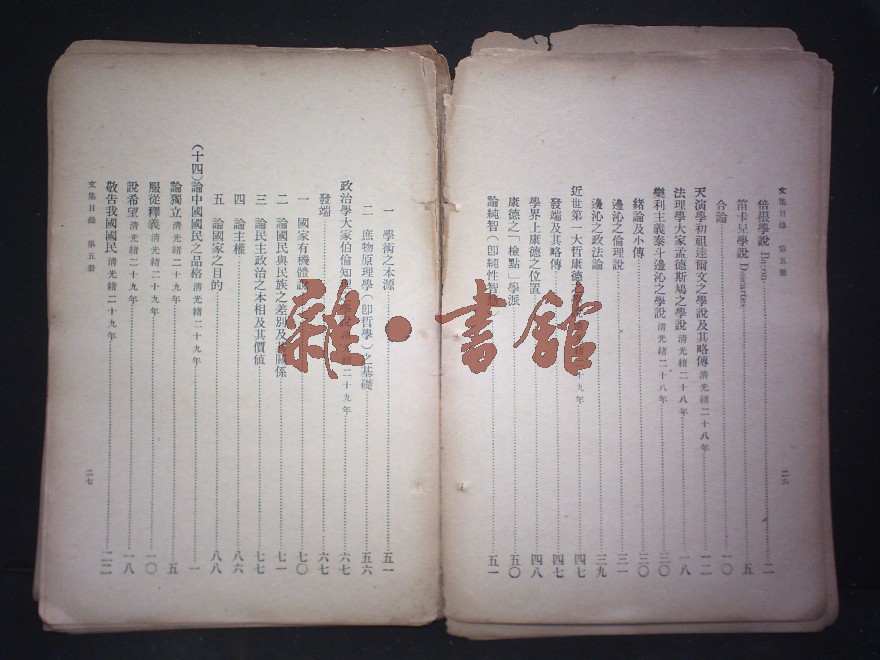 文集目錄 第五册
倍根學說 Bacon 二
笛卡兒學說 Descartes 五
合論 一〇
天演學初祖達爾文之學說及其略傳 清光緒二十八年 一二
法理學大家孟德斯鳩之學說 清光緒二十八年 一八
樂利主義泰斗邊沁之學說 清光緒二十八年 三〇
緒論及小傳 三〇
邊沁之倫理說 三一
邊沁之政法論 三九
近世第一大哲康德之 十九年 四七
發端及其略傳 四七
學界上康德之位置 四八
康德之「檢點」學派 五〇
論純智(卽純性智 五一
二六
一 學術之本源 五一
二 庶物原理學(卽哲學)之基礎 五六
政治學大家伯倫知理 二十九年 六七
發端 六七
一 國家有機體說 七〇
二 論國民與民族之差別及其關係 七一
三 論民主政治之本相及其價値 七七
四 論主權 八六
五 論國家之目的 八八
(十四)論中國國民之品格 清光緒二十九年 一
論獨立 清光緒二十九年 五
服從釋義 清光緒二十九年 一〇
說希望 清光緒二十九年 一八
敬告我國國民 清光緒二十九年 二二
文集目錄 第五册
二七
雜·書館